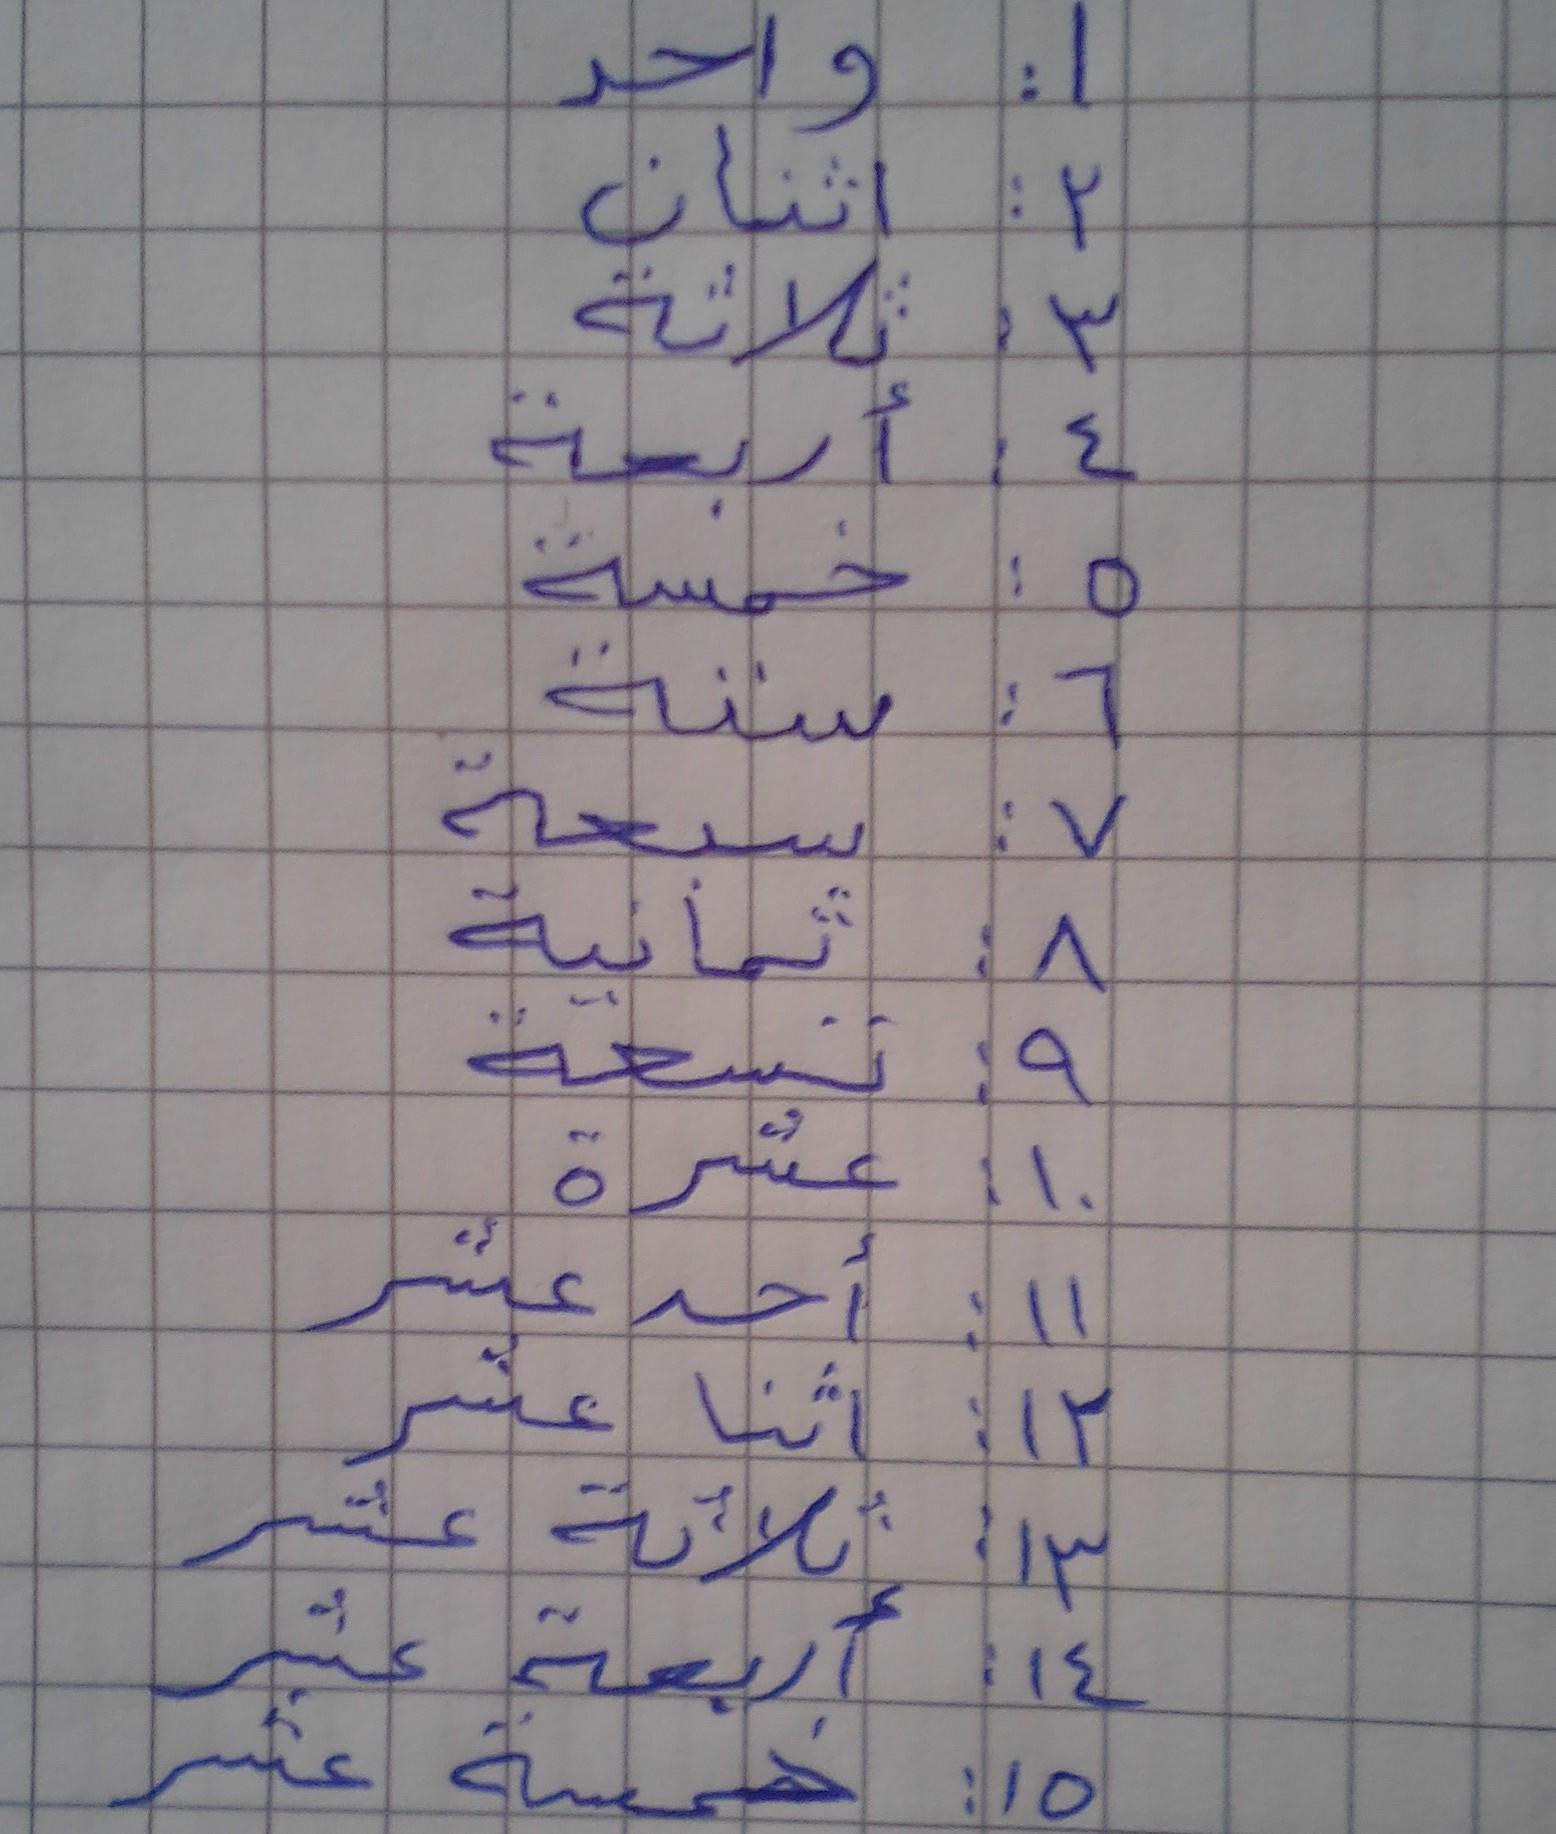 ١: واحد
٢: اثنان
٣: ثلاثة
٤: أربعة
٥: خمسة
٦: ستة
٧: سبعة
٨: ثمانية
٩: تسعة
١٠: عشرة
١١: أحد عشر
١٢: اثنا عشر
١٣: ثلاثة عشر
١٤: أربعة عشر
١٥: خمسة عشر